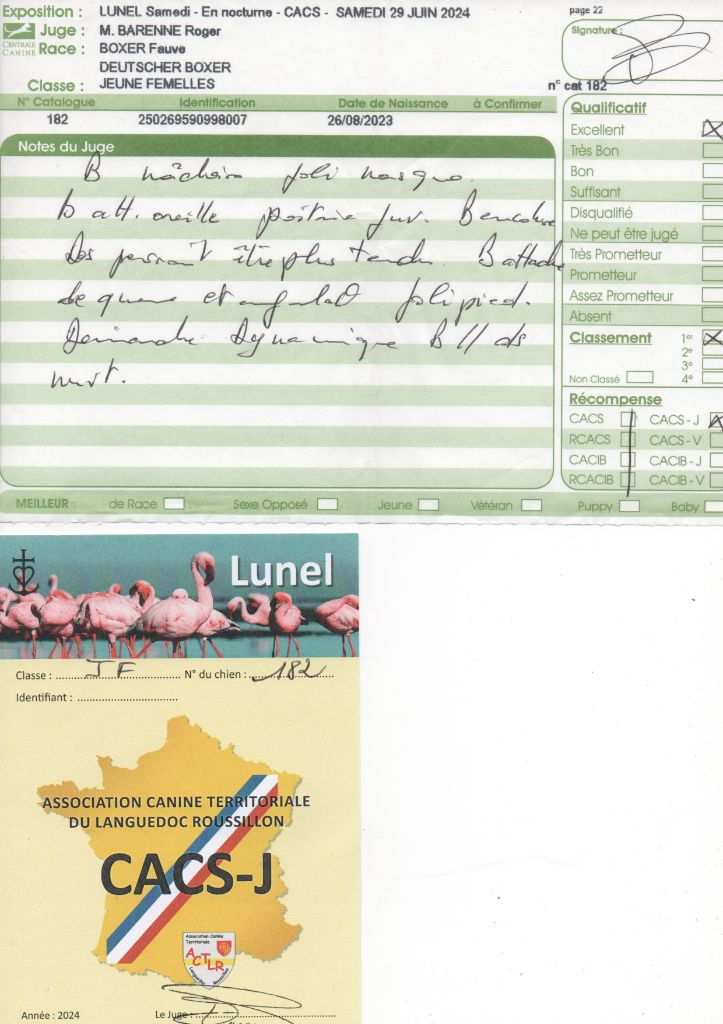 Exposition : LUNEL Samedi - En nocturne - CACS - SAMEDI 29 JUIN 2024
page 22
CENTRALE CANINE
Juge : M. BARENNE Roger
Signature :
Race : BOXER Fauve
DEUTSCHER BOXER
Classe : JEUNE FEMELLES
n° cat 182
N° Catalogue Identification Date de Naissance à Confirmer
182 250269590998007 26/08/2023
Qualificatif
Excellent
Très Bon
Bon
Suffisant
Disqualifié
Ne peut être jugé
Très Prometteur
Prometteur
Assez Prometteur
Absent
Notes du Juge
B mâchoire joli masque.
B att. oreille poitrine B encolure
Dos pourrait être plus tendu B attache
de queue et angulat joli pied.
Démarche Dynamique B // ds
Classement 1er
2e
3e
Non Classé 4e
Récompense
CACS CACS - J
RCACS CACS - V
CACIB CACIB - J
RCACIB CACIB - V
MEILLEUR : de Race Sexe Opposé Jeune Vétéran Puppy Baby
Lunel
Classe : JF N° du chien : 182
Identifiant :
ASSOCIATION CANINE TERRITORIALE
DU LANGUEDOC ROUSSILLON
CACS-J
Association Canine
Territoriale
ACTLR
Languedoc Roussillon
Année : 2024 Le Juge :